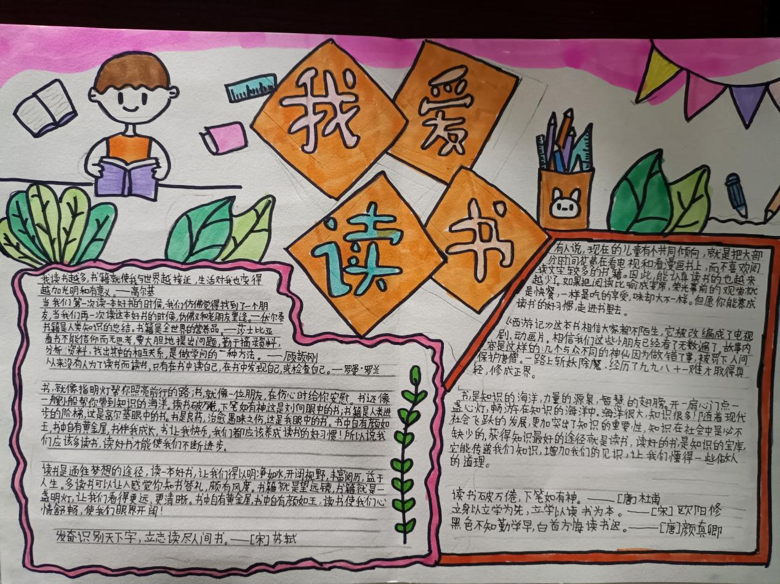 我爱
读书
我读书越多,书籍就使我与世界越接近,生活对我也变得
越加光明和有意义。——高尔基
当我们第一次读本好书的时候,我们仿佛觉得找到了一个朋
友,当我们再一次读这本好书的时候,仿佛又和老朋友重逢。——伏尔泰
书籍是人类知识的总结,书籍是全世界的营养品。——莎士比亚
从来没有人为了读书而读书,只有在书中读自己,在书中发现自己,或检查自己。——罗曼·罗兰
书,就像指明灯帮你照亮前行的路;书,就像一位朋友,在你心时给你安慰。书还像
一艘船,能帮你带到知识的海洋。读书破万卷,下笔如有神这是刘向眼中的书;书籍是人类进步
的阶梯,这是高尔基眼中的书。书是良药,治愈愚昧之伤,这是我眼中的书。书中自有颜如
玉,书中自有黄金屋,书伴我成长,书让我快乐,我们都应该养成读书的好习惯!所以说我
们应该多读书、读好书才能使我们不断进步。
读书是通往梦想的途径,读一本好书,让我们得以明净如水,开阔视野,丰富阅历,益于
人生。多读书可以让人感觉你知书答礼,颇有风度。书籍就是望远镜,书籍就是一
盏明灯,让我们看得更远、更清晰。书中自有黄金屋,书中自有颜如玉,读书使我们心
情舒畅,使我们眼界开阔!
发奋识别天下字,立志读尽人间书。——[宋]苏轼
有人说,现在的儿童有个共同倾向,就是把大部
分时间花费在看电视和看漫画书上,而不喜欢阅
读文字较多的书籍。因此,经认真读书的也越来
越少了。如果把阅读比喻成主席,荧光幕前的观坐就
是快餐,一样是吃的享受,味却大不一样。但愿你能养成
读书的好习惯,走进书野去。
《西游记》这本书相信大家都不陌生,它被改编成了电视
剧、动画片,相信我们这些小朋友已经看了无数遍了,故事内
容是这样的:几个与众不同的神仙因为做错了事,被贬下人间
保护唐僧。一路上斩妖除魔,经历了九九八十一难才取得真
经,修成正果。
书是知识的海洋,力量的源泉,智慧的翅膀,开一扇心门点一
盏心灯,畅游在知识的海洋中。海洋很大,知识很多!随着现代
社会飞跃的发展,更加突出了知识的重要性,知识在社会中是必不
缺少的。获得知识最好的途径就是读书,读好的书,是知识的宝库,
它能传递我们知识,增加我们的见识,让我们懂得一些做人
的道理。
读书破万倦,下笔如有神。——[唐]杜甫
立身以立学为先,立学以读书为本。——[宋]欧阳修
黑色不知勤学早,白首方悔读书迟。——[唐]颜真卿